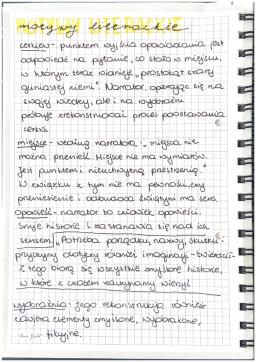 motywy literackie
cerkiew - punktem wyjścia opowiadania jest
odpowiedź na pytanie, co stało w miejscu,
w którym teraz widnieje „prostokąt szarej
gliniastej ziemi". Narrator, opierając się na
swojej wiedzy, ale i na wyobraźni
próbuje zrekonstruować proces powstawania
cerkwi.
miejsce - według narratora: „miejsca nie
można przenieść. Miejsce nie ma wymiarów.
Jest punktem i nieuchwytną przestrzenią."
W związku z tym nie ma pewności, czy
przeniesienie i odbudowa świątyni ma sens.
opowieść - narrator to człowiek opowieści.
Snuje historie i zastanawia się nad ich
sensem. Potrzeba porządku, nazwy, skutku i
przyczyny dotyczy również imaginacji - twierdzi -
z tego biorą się wszystkie zmyślone historie,
w które z czasem zaczynamy wierzyć
wyobraźnia - jego rekonstrukcja również
zawiera elementy zmyślone, wyobrażone,
fikcyjne.